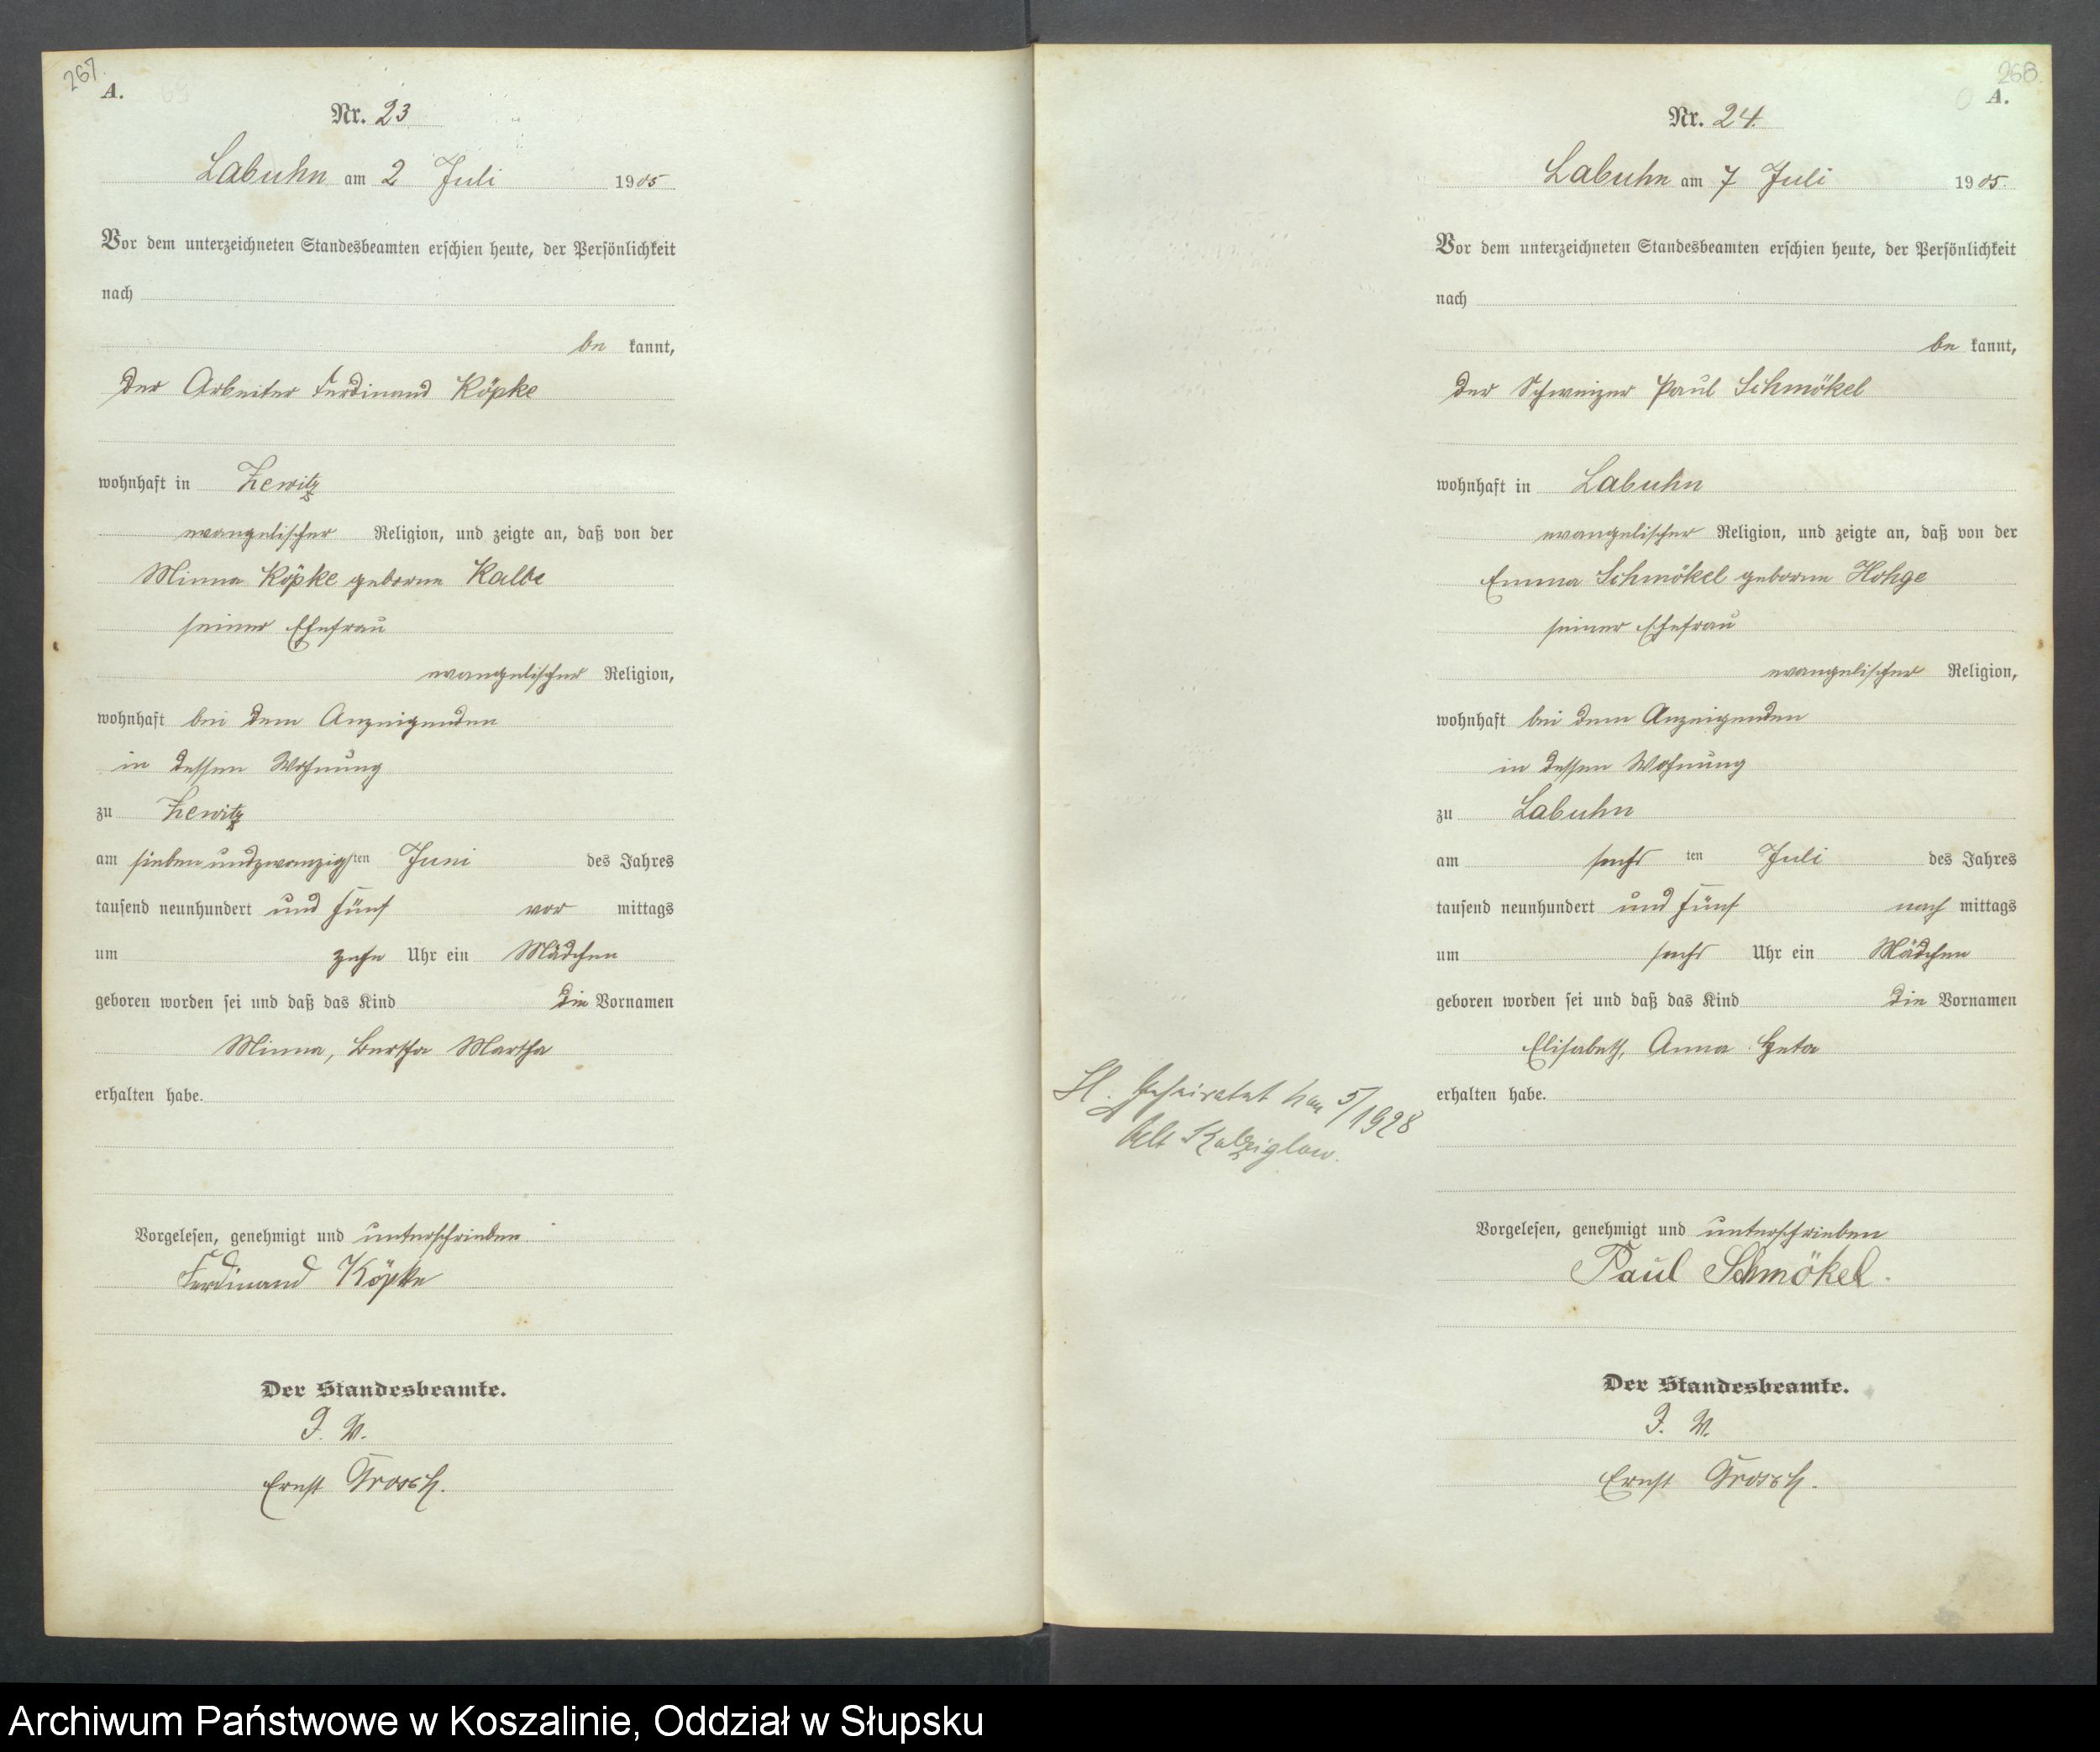 267.
A.
Nr. 23
Labuhn am 2 Juli 1905
Vor dem unterzeichneten Standesbeamten erschien heute, der Persönlichkeit
nach
be kannt,
der Arbeiter Ferdinand Köpke
wohnhaft in Zewitz
evangelischer Religion, und zeigte an, daß von der
Minna Köpke geborne Kalbe
seiner Ehefrau
evangelischer Religion,
wohnhaft bei dem Anzeigenden
in dessen Wohnung
zu Zewitz
am sieben undzwanzigsten Juni des Jahres
tausend neunhundert und fünf vor mittags
um zehn Uhr ein Mädchen
geboren worden sei und daß das Kind die Vornamen
Minna, Bertha Martha
erhalten habe.
Vorgelesen, genehmigt und unterschrieben
Ferdinand Köpke
Der Standesbeamte.
J. V.
Ernst
268.
A.
Nr. 24.
Labuhn am 7 Juli 1905.
Vor dem unterzeichneten Standesbeamten erschien heute, der Persönlichkeit
nach
be kannt,
der Schweizer Paul Schmökel
wohnhaft in Labuhn
evangelischer Religion, und zeigte an, daß von der
Emma Schmökel geborne Hohge
seiner Ehefrau
evangelischer Religion,
wohnhaft bei dem Anzeigenden
in dessen Wohnung
zu Labuhn
am sechs ten Juli des Jahres
tausend neunhundert und fünf nach mittags
um sechs Uhr ein Mädchen
geboren worden sei und daß das Kind die Vornamen
Elisabeth, Anna
erhalten habe.
Vorgelesen, genehmigt und unterschrieben
Paul Schmökel.
Der Standesbeamte.
J. V.
Ernst
Geheiratet 5/1928
Alt
Archiwum Państwowe w Koszalinie, Oddział w Słupsku